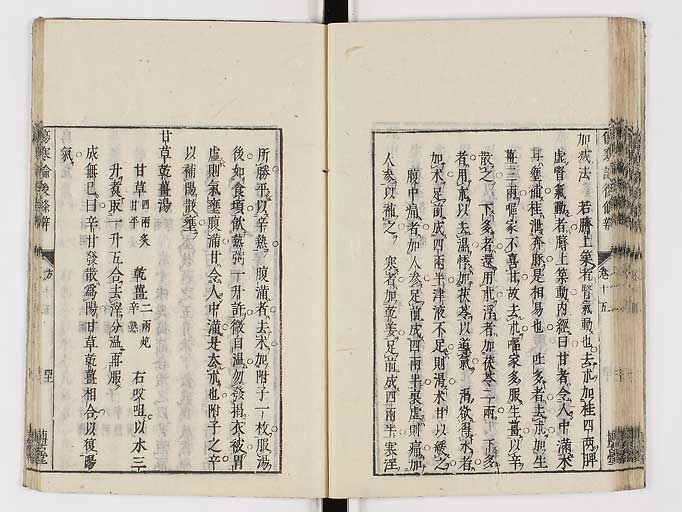 加減法 若臍上築者腎氣動也去朮加桂四兩脾
虛腎氣動者臍上築動內經曰甘者令人中滿朮
甘壅補桂泄奔豚是相易也 吐多者去朮加生
薑三兩嘔家不喜甘故去朮嘔家多服生薑以辛
散之 下多者還用朮悸者加茯苓二兩下多
者用朮以去濕悸加茯苓以導氣 渴欲得水者
加朮足前成四兩半津液不足則渴朮甘以緩之
腹中痛者加人參足前成四兩半裏虛則痛加
人參以補之 寒者加乾薑足前成四兩半寒淫
所勝平以辛熱 腹滿者去朮加附子一枚服湯
後如食頃飲熱粥一升許微自溫勿發揭衣被胃
虛則氣壅腹滿甘令人中滿是去朮也附子之辛
以補陽散壅
甘草乾薑湯
甘草四兩炙甘平 乾薑二兩炮辛熱 右㕮咀以水三
升煮取一升五合去滓分溫再服
成無已曰辛甘發散爲陽甘草乾薑相合以復陽
氣
傷寒論後條辨
方
卷十五